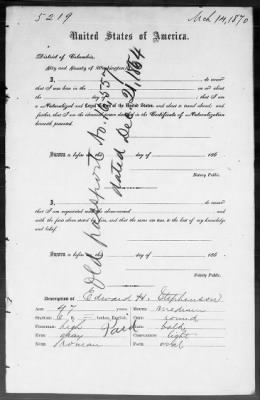 5219
Mch 14, 1870
United States of America.
District of Columbia,
City and County of Washington
I do swear
that I was born in the on or about
the day of ; that I am
a Naturalized and Loyal Citizen of the United States, and about to travel abroad; and
further, that I am the identical person described in the Certificate of Naturalization
herewith presented.
Sworn to before me this day of 186
Notary Public.
Old passport No 16,557
dated Dec 21, 1864
I do swear
that I am acquainted with the above-named and
with the facts above stated by him, and that the same are true to the best of my knowledge
and belief.
Sworn to before me this day of 186
Notary Public.
Description of Edward H. Stephenson
Age: 47 years, Mouth: medium
Stature: 5 ft. inches, English, Chin: round
Forehead: high Hair: bald
Paid
Eyes: gray Complexion: light
Nose: roman Face: oval